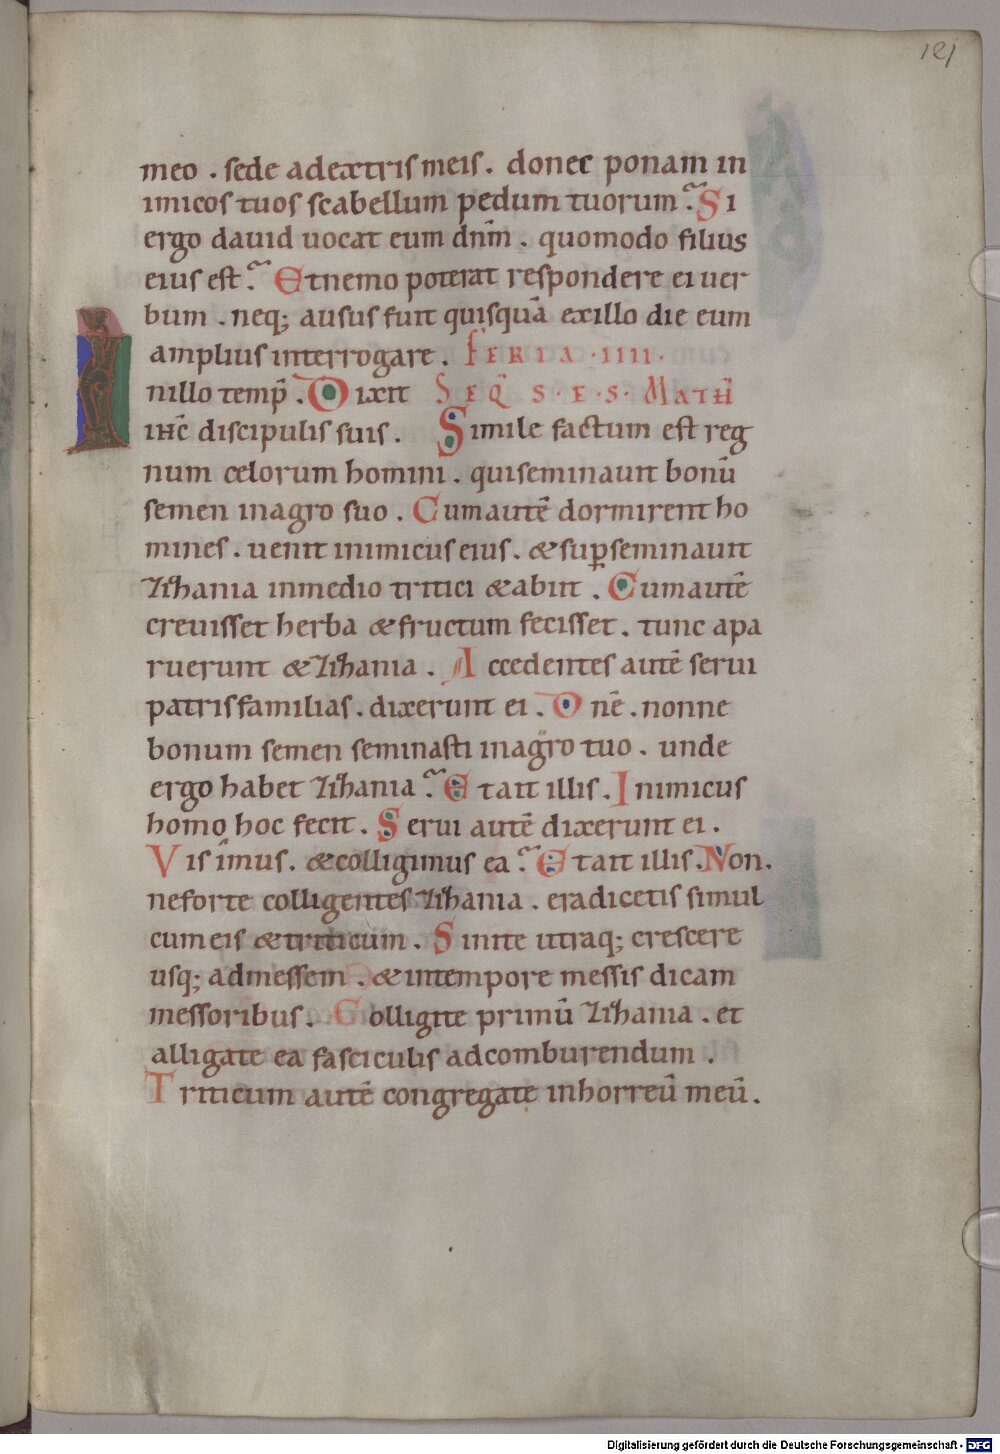 121
meo . sede adextris meis . donec ponam in
imicos tuos scabellum pedum tuorum . Si
ergo dauid uocat eum dn̄m . quomodo filius
eius est . Et nemo poterat respondere ei uer
bum . neq; ausus fuit quisquā exillo die eum
amplius interrogare . FERIA · IIII ·
Inillo temp̄ . Dixit SEQ̄ S · E · S · MATH̄
ihc̄ discipulis suis . Simile factum est reg
num celorum homini . quiseminauit bonū
semen inagro suo . Cumautē dormirent ho
mines . uenit inimicus eius . & sup̱seminauit
zizania inmedio tritici & abiit . Cumautē
creuisset herba & fructum fecisset . tunc apa
ruerunt & zizania . Accedentes autē serui
patrisfamilias . dixerunt ei . Dn̄e . nonne
bonum semen seminasti inagro tuo . unde
ergo habet zizania . Et ait illis . Inimicus
homo hoc fecit . Serui autē dixerunt ei .
Vis imus . & colligimus ea . Et ait illis . Non .
neforte colligentes zizania . eradicetis simul
cumeis & triticum . Sinite utraq; crescere
usq; admessem . & intempore messis dicam
messoribus . Colligite primū zizania . et
alligate ea fasciculis adcomburendum .
Triticum autē congregate inhorreū meū .
Digitalisierung gefördert durch die Deutsche Forschungsgemeinschaft - DFG